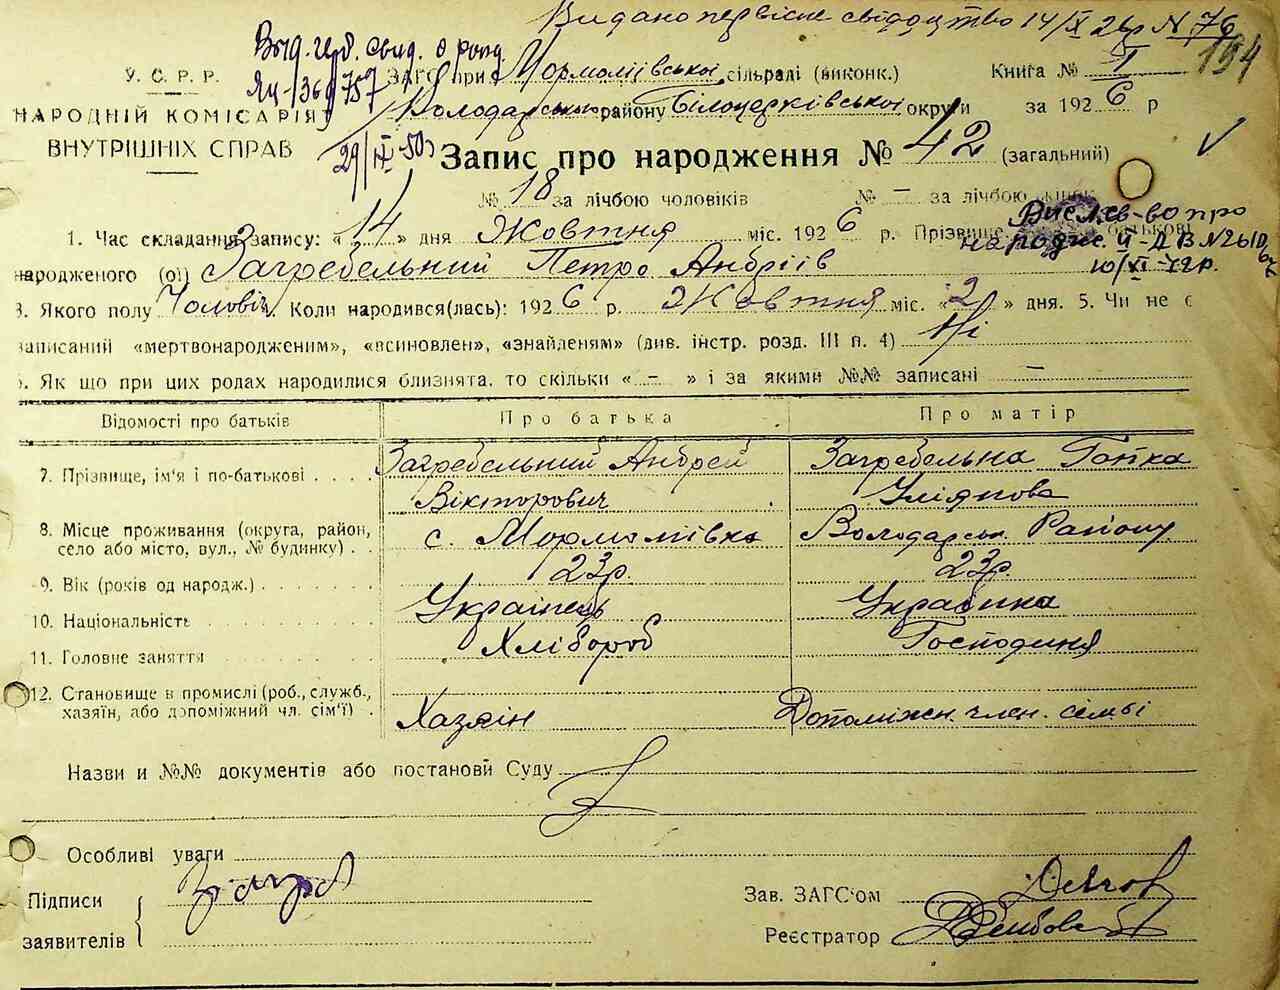 Видано первісне свідоцтво 14/X 26р N 76
194
Выд. свид. о рожд.
ЯЦ-1369757
29/IX-50
У. С. Р. Р.
НАРОДНІЙ КОМІСАРІЯТ
ВНУТРІШНІХ СПРАВ
ЗАГС при Мормоліївської сільраді (виконк.) Книга № I
Володарського району Білоцерківської округи за 1926 р
Запис про народження № 42 (загальний)
№ 18 за лічбою чоловіків № — за лічбою жінок
1. Час складання запису: « 14 » дня Жовтня міс. 1926 р. Прізвище, батькові
народженого (ої) Загребельний Петро Андріїв
Висл. св-во про
народже. II-ДВ №261067
10/XI-72р.
3. Якого полу Чоловіч. Коли народився(лась): 1926 р. Жовтня міс. « 2 » дня. 5. Чи не є
записаний «мертвонародженим», «всиновлен», «знайденям» (див. інстр. розд. III п. 4) Ні
6. Як що при цих родах народилися близнята, то скільки « — » і за якими №№ записані —
Відомості про батьків Про батька Про матір
7. Прізвище, ім'я і по-батькові . . . . Загребельний Андрей Вікторович Загребельна Гапка Уліянова
8. Місце проживання (округа, район,
село або місто, вул., № будинку) . . с. Мормоліївка Володарськ Району
9. Вік (років од народж.) . . . . 23р. 23р.
10. Національність Українець Українка
11. Головне заняття Хлібороб Господиня
12. Становище в промислі (роб., служб.,
хазяїн, або допоміжний чл. сім'ї) . Хазяін Допоміжен. член. семьі
Назви и №№ документів або постанови Суду
Особливі уваги
Підписи
заявителів
Зав. ЗАГС'ом
Реєстратор